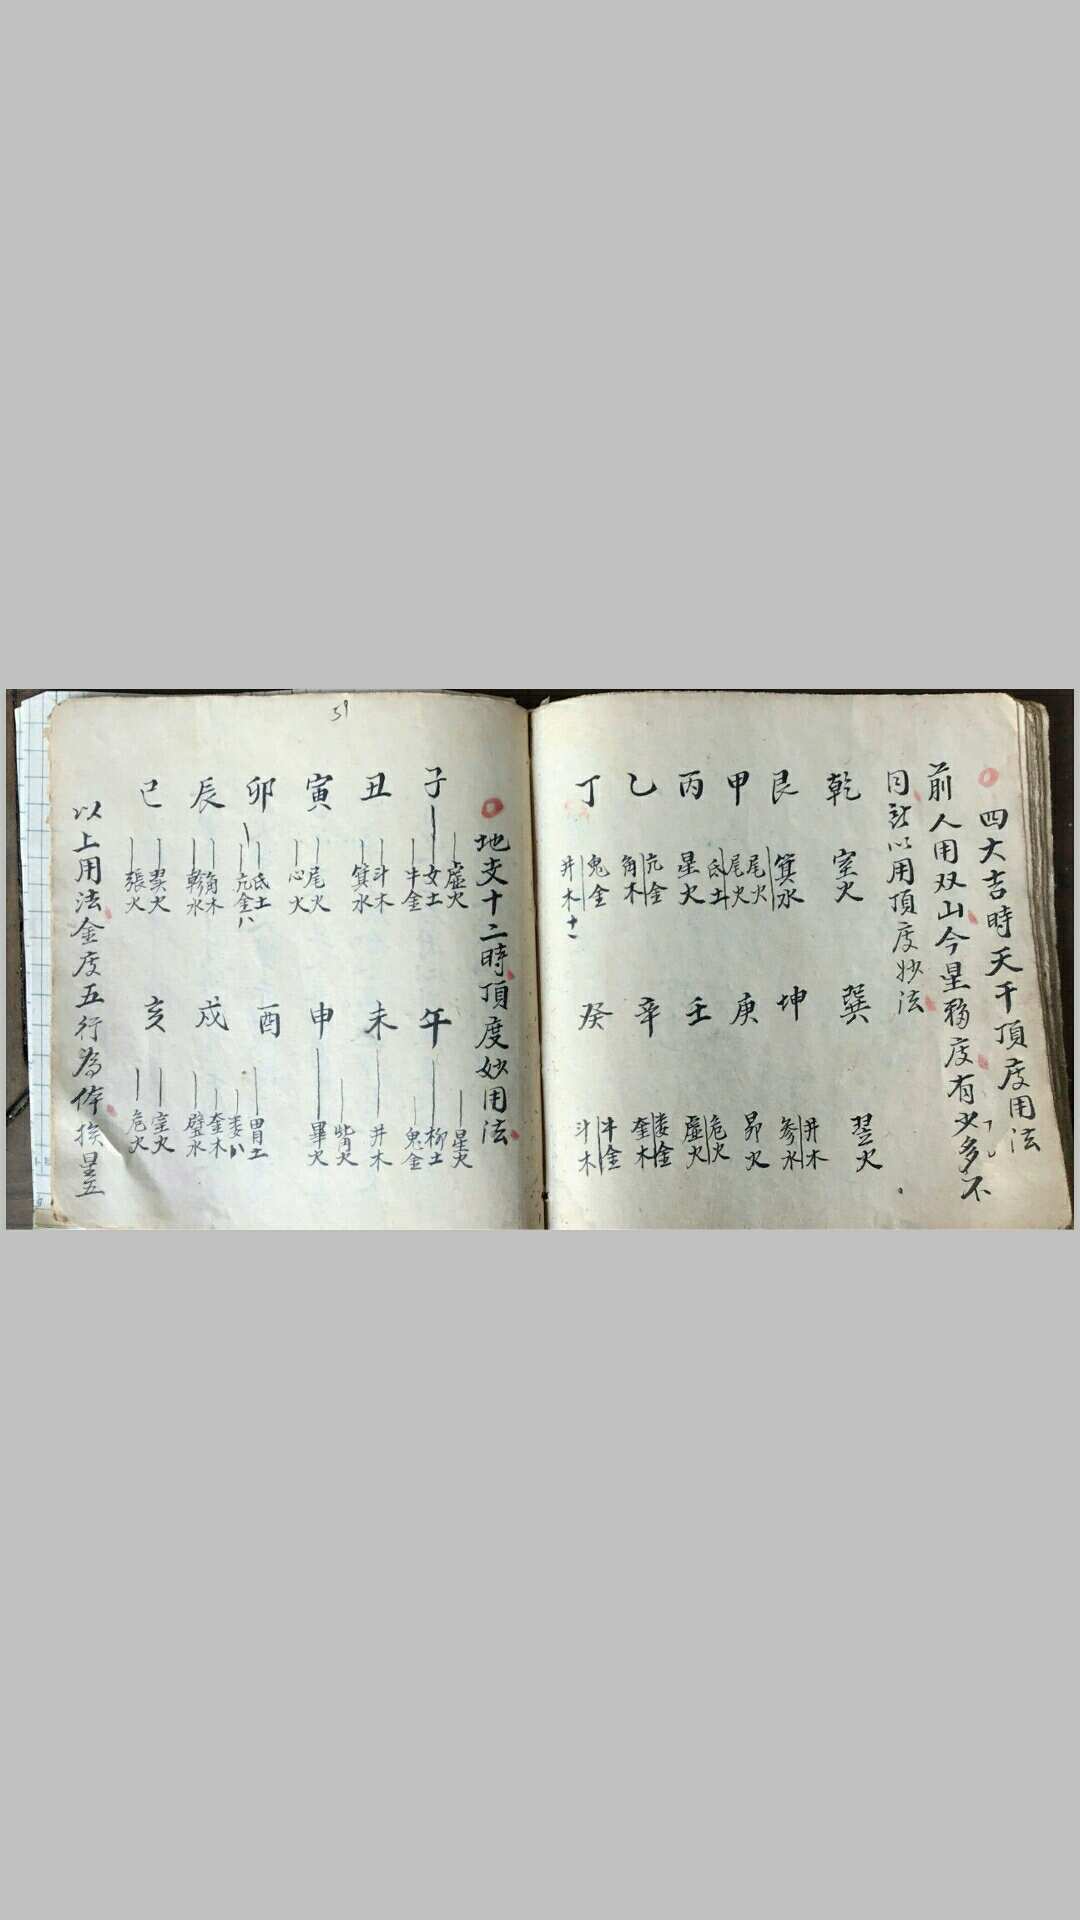 四大吉時天干頂度用法
前人用双山今星移度有少多不
同訣以用頂度妙法
乾 艮 甲 丙 乙 丁
室火
箕水
尾火 尾火 氐土
星火
亢金 角木
鬼金 井木十一
巽 坤 庚 壬 辛 癸
翌火
井木 参水
昴火
危火 虛火
娄金 奎木
牛金 斗木
地支十二時頂度妙用法
子 丑 寅 卯 辰 巳
虛火 女土 牛金
斗木 箕水
尾火 心火
氐土 亢金八
角木 軫水
翌火 張火
午 未 申 酉 戌 亥
星火 柳土 鬼金
井木
觜火 畢火
胃土 娄八
奎木 壁水
室火 危火
以上用法金度五行為体挨星五
51